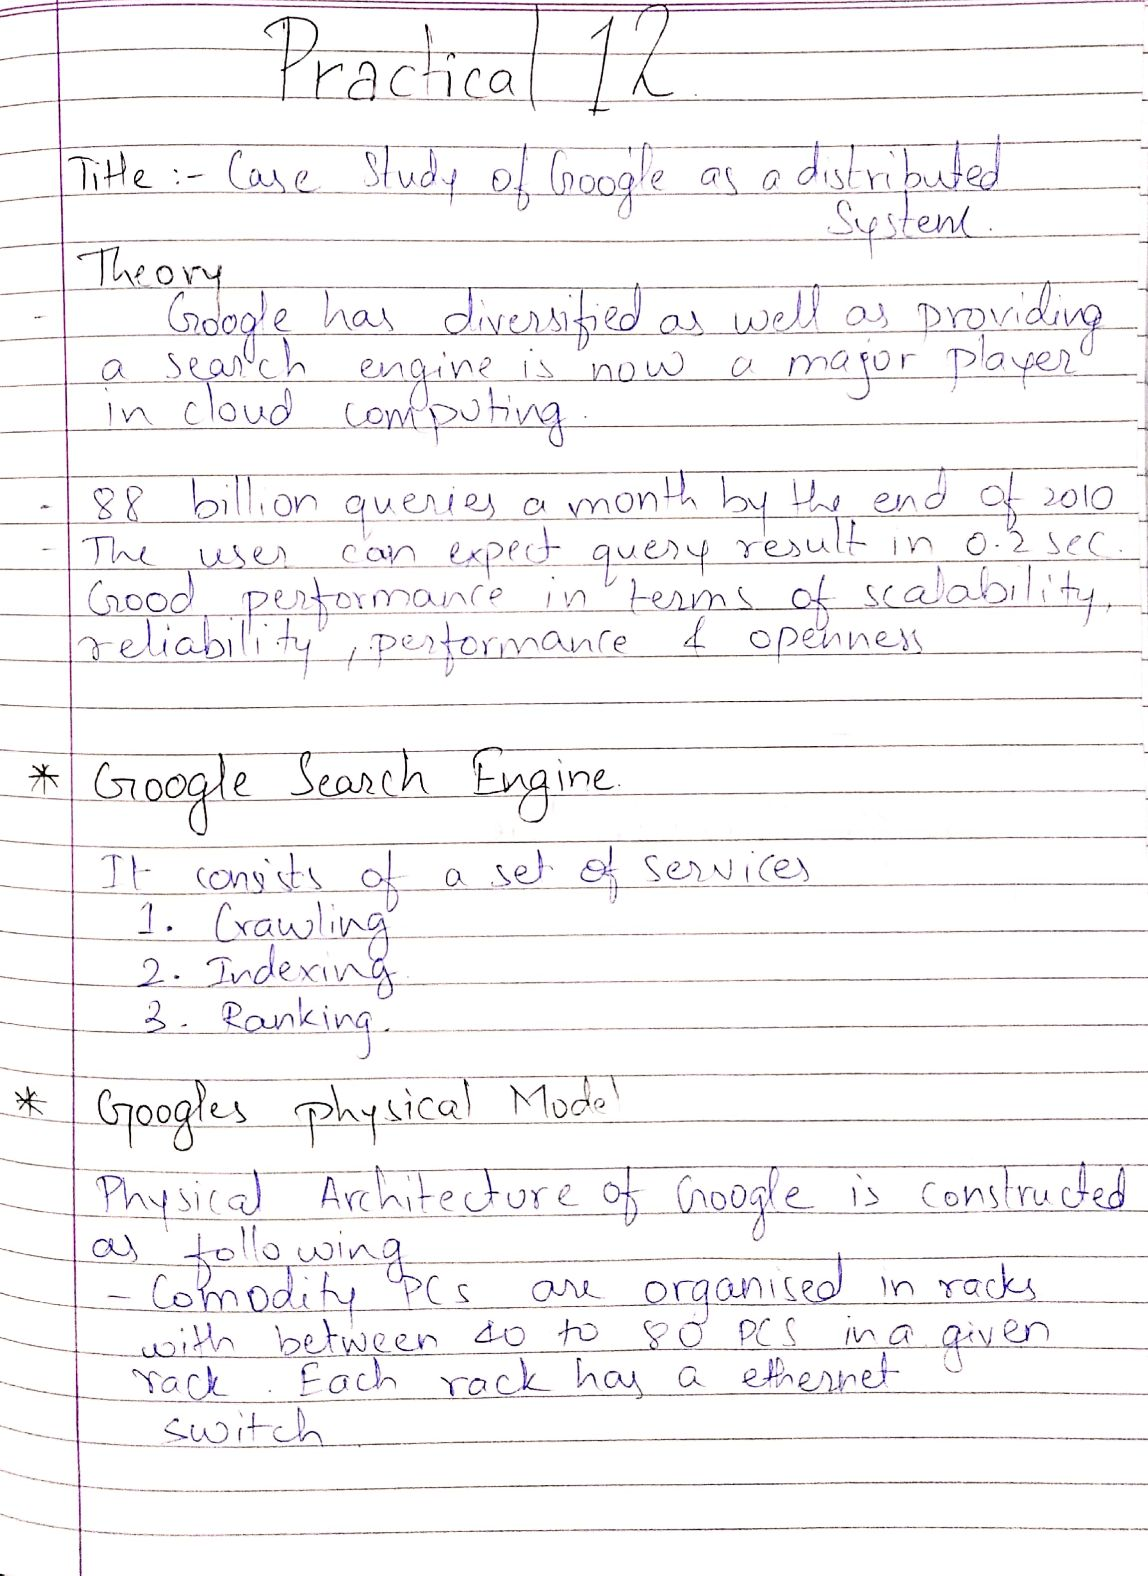 Practical 12
Title :- Case Study of Google as a distributed
System.
Theory
- Google has diversified as well as providing
a search engine is now a major player
in cloud computing.
- 88 billion queries a month by the end of 2010
- The user can expect query result in 0.2 sec.
Good performance in terms of scalability,
reliability, performance & openness
* Google Search Engine.
It consists of a set of services
1. Crawling
2. Indexing.
3. Ranking.
* Googles physical Model
Physical Architecture of Google is constructed
as following
- Comodity PCs are organised in racks
with between 40 to 80 PCS in a given
rack. Each rack has a ethernet
switch